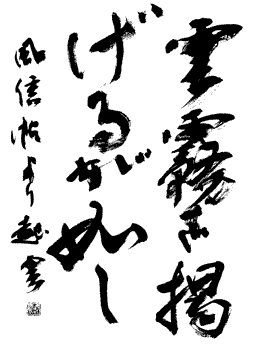 雲霧を掲
げるが如し
風信帖より 越雲